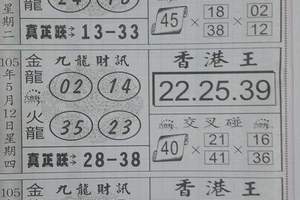 期二
真正旺→13-33
45
18 02
38 12
105年5月12日星期四
金龍
火龍
九龍財訊
02 14
35 23
真正旺→28-38
香港王
22.25.39
交叉碰
40
21 16
41 36
105
金
九龍財訊
香港王